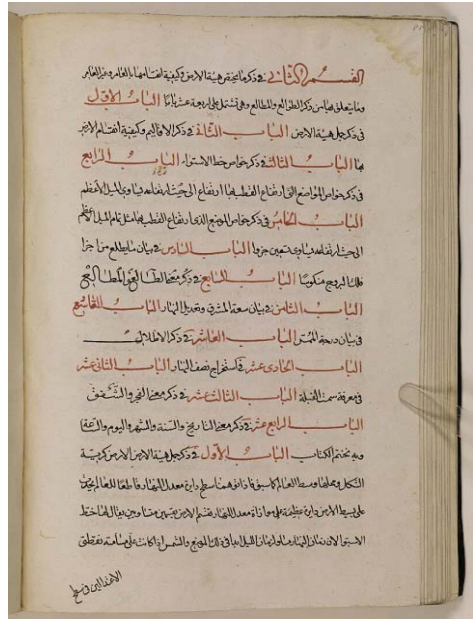 القسم الثاني في ذكر ما يختص هيئة الارض وكيفية انقسامها الى العامر وغير العامر
وما يتعلق بها من ذكر الطوالع والمطالع وهي تشتمل على اربعة عشر بابا الباب الاول
في ذكر جمل هيئة الارض الباب الثاني في ذكر الاقاليم وكيفية انقسام الارض
بها الباب الثالث في ذكر خواص خط الاستواء الباب الرابع
في ذكر خواص المواضع التي ارتفاع القطب بها ارتفاع الميل الاعظم
الباب الخامس في ذكر خواص الموضع الذي ارتفاع القطب بها مثل تمام الميل الاعظم
الى حيث ارتفاعه يساوي تسعين جزوا الباب السادس في بيان ما يطلع من اجزا
فلك البروج منكوسا الباب السابع في ذكر معنى الطالع والمطالع
الباب الثامن في بيان سعة المشرق وتعديل النهار الباب التاسع
في بيان درجة الممر الباب العاشر في ذكر الاظلال
الباب الحادي عشر في استخراج نصف النهار الباب الثاني عشر
في معرفة سمت القبلة الباب الثالث عشر في ذكر معنى الفجر والشفق
الباب الرابع عشر في ذكر معنى التاريخ والسنة والشهر واليوم والساعة
وبه نختم الكتاب الباب الاول في ذكر جمل هيئة الارض الارض كرية
الشكل ومحلها وسط العالم كما سبق فاذا توهمنا سطح دايرة معدل النهار قاطعا للعالم يحدث
على بسيط الارض دايرة عظيمة على موازاة معدل النهار تقسم الارض بقسمين متساويين يقال لها خط
الاستوا لان زمان النهار مساو لزمان الليل ابدا في ذلك الموضع والشمس اذا كانت على مسامتة نقطتي
الاعتدالين في سطح